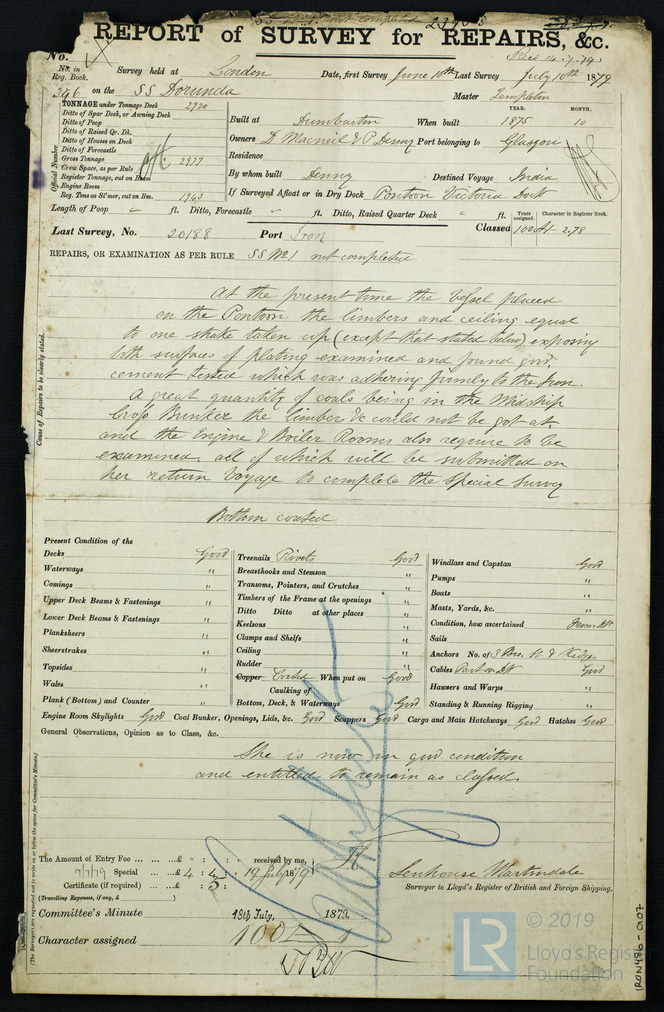 SS No 1 not completed 2370
REPORT of SURVEY for REPAIRS, &c.
No.
Rec 14.7.79
No. in Reg. Book. Survey held at London Date, first Survey June 10th Last Survey July 10th 1879
396 on the SS Dorunda Master Templeton
TONNAGE under Tonnage Deck 2920
Ditto of Spar Deck, or Awning Deck
Ditto of Poop
Ditto of Raised Qr. Dk.
Ditto of Houses on Deck
Ditto of Forecastle
Gross Tonnage 2977
Crew Space, as per Rule
Register Tonnage, cut on Bm
Engine Room
Reg. Tons as St'mer, cut on Bm. 1943
Official Number
YEAR. MONTH.
Built at Dumbarton When built 1875 10
Owners D Macneil & P Denny Port belonging to Glasgow
Residence
By whom built Denny Destined Voyage India
If Surveyed Afloat or in Dry Dock Pontoon Victoria Dock
Length of Poop " ft. Ditto, Forecastle " ft. Ditto, Raised Quarter Deck " ft.
Years assigned. Character in Register Book.
Last Survey, No. 20188 Port Iron Classed 100 A1 - 2,78
REPAIRS, OR EXAMINATION AS PER RULE SS No 1 not completed
Cause of Repairs to be clearly stated.
At the present time the Vessel placed
on the Pontoon the limbers and ceiling equal
to one strake taken up (except that stated below) exposing
both surfaces of plating examined and found good,
cement tested which was adhering firmly to the Iron.
A great quantity of coals being in the Midship
Cross Bunker the limbers &c could not be got at
and the Engine & Boiler Rooms also require to be
examined, all of which will be submitted on
her return Voyage to complete the Special Survey
Bottom coated
Present Condition of the
Decks Good
Waterways "
Comings "
Upper Deck Beams & Fastenings "
Lower Deck Beams & Fastenings "
Planksheers "
Sheerstrakes "
Topsides "
Wales "
Plank (Bottom) and Counter "
Treenails Rivets Good
Breasthooks and Stemson "
Transoms, Pointers, and Crutches "
Timbers of the Frame at the openings "
Ditto Ditto at other places "
Keelsons "
Clamps and Shelfs "
Ceiling "
Rudder "
Copper Coated When put on Good
Caulking of
Bottom, Deck, & Waterways Good
Windlass and Capstan Good
Pumps "
Boats "
Masts, Yards, &c. "
Condition, how ascertained From Dk
Sails "
Anchors No. of 3 Brs. St & Kedge "
Cables Part on Dk Good
Hawsers and Warps "
Standing & Running Rigging "
Engine Room Skylights Good Coal Bunker, Openings, Lids, &c. Good Scuppers Good Cargo and Main Hatchways Good Hatches Good
General Observations, Opinion as to Class, &c.
She is now in good condition
and entitled to remain as classed.
The Amount of Entry Fee ... ... £ : : received by me,
Special ... ... £ 4 : 4 : 19 July 1879
Certificate (if required) ... £ : 5 :
(Travelling Expenses, if any, £ )
Senhouse Martindale
Surveyor to Lloyd's Register of British and Foreign Shipping.
Committee's Minute 18th July, 1879
Character assigned 100 A 1
(The Surveyors are requested not to write on or below the space for Committee's Minute.)
© 2019
LR
Lloyd's Register
Foundation
IRON486-0107